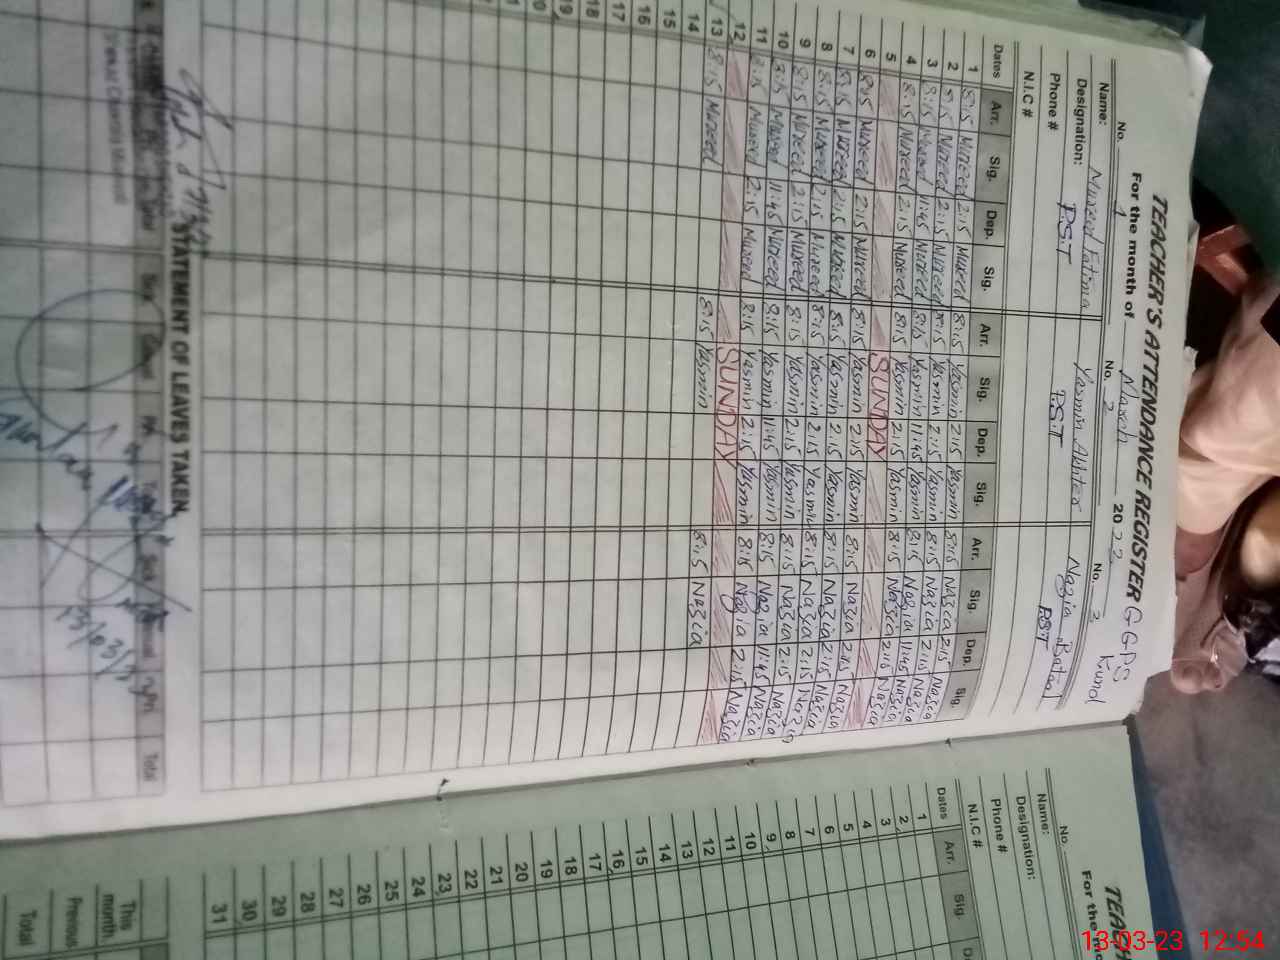 TEACHER'S ATTENDANCE REGISTER GGPS
Kund
For the month of March 2023
No. 1 No. 2 No. 3
Name: Mureed Fatima Yasmin Akhter Nazia Batool
Designation: P.S.T P.S.T P.S.T
Phone #
N.I.C #
Dates Arr. Sig. Dep. Sig. Arr. Sig. Dep. Sig. Arr. Sig. Dep. Sig.
1 8:15 Mureed 2:15 Mureed 8:15 Yasmin 2:15 Yasmin 8:15 Nazia 2:15 Nazia
2 8:15 Mureed 2:15 Mureed 8:15 Yasmin 2:15 Yasmin 8:15 Nazia 2:15 Nazia
3 8:15 Mureed 11:45 Mureed 8:15 Yasmin 11:45 Yasmin 8:15 Nazia 11:45 Nazia
4 8:15 Mureed 2:15 Mureed 8:15 Yasmin 2:15 Yasmin 8:15 Nazia 2:15 Nazia
5 SUNDAY
6 8:15 Mureed 2:15 Mureed 8:15 Yasmin 2:15 Yasmin 8:15 Nazia 2:15 Nazia
7 8:15 Mureed 2:15 Mureed 8:15 Yasmin 2:15 Yasmin 8:15 Nazia 2:15 Nazia
8 8:15 Mureed 2:15 Mureed 8:15 Yasmin 2:15 Yasmin 8:15 Nazia 2:15 Nazia
9 8:15 Mureed 2:15 Mureed 8:15 Yasmin 2:15 Yasmin 8:15 Nazia 2:15 Nazia
10 8:15 Mureed 11:45 Mureed 8:15 Yasmin 11:45 Yasmin 8:15 Nazia 11:45 Nazia
11 8:15 Mureed 2:15 Mureed 8:15 Yasmin 2:15 Yasmin 8:15 Nazia 2:15 Nazia
12 SUNDAY
13 8:15 Mureed 8:15 Yasmin 8:15 Nazia
14
15
16
17
18
19
20
STATEMENT OF LEAVES TAKEN.
Total
13/03/23
TEACH
For the m
No.
Name:
Designation:
Phone #
N.I.C #
Dates Arr. Sig. D
1
2
3
4
5
6
7
8
9
10
11
12
13
14
15
16
17
18
19
20
21
22
23
24
25
26
27
28
29
30
31
This month.
Previous
Total
13-03-23 12:54